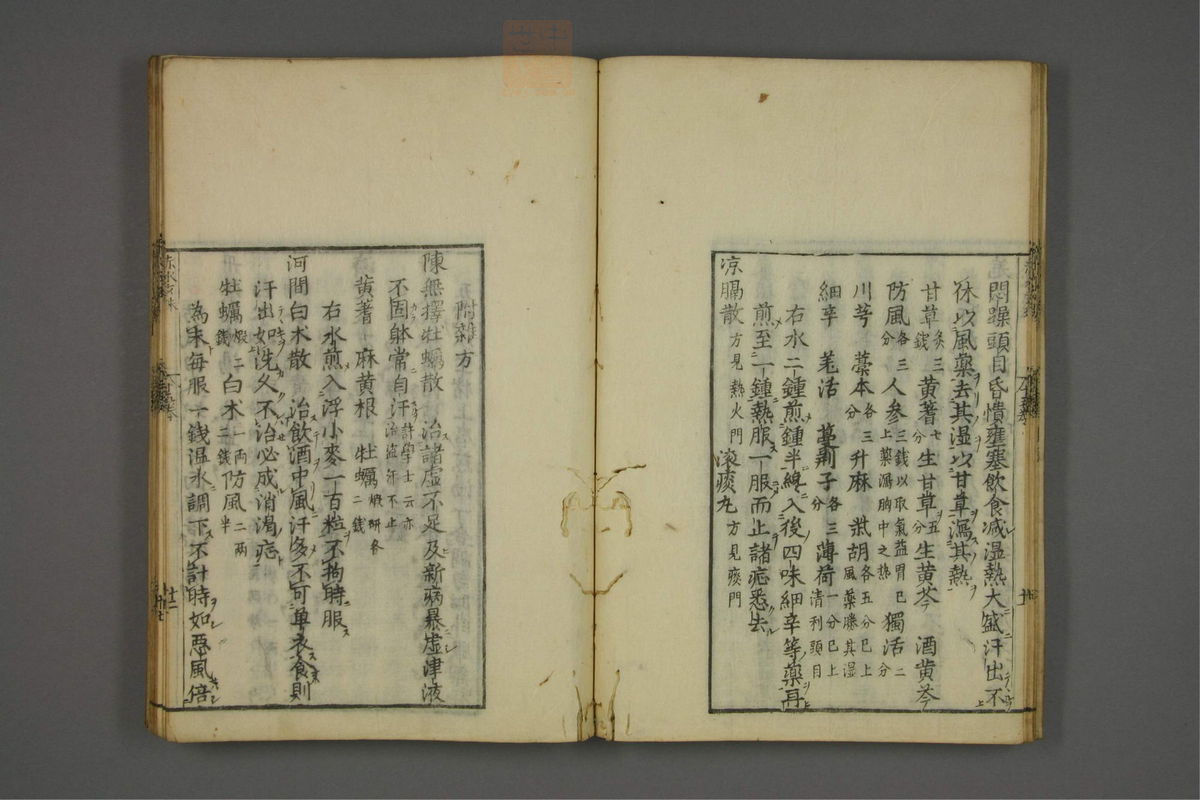 悶躁頭目昏憒壅塞飲食減湿熱大盛汗出不
休以風藥去其湿以甘草瀉其熱
甘草灸三錢黄蓍七分生甘草五分生黄芩 酒黄芩
防風各三分人参三錢以取氣益胃巳上藥瀉胸中之热獨活二分
川芎 藁本各三分升麻 柴胡各五分巳上風藥勝其湿
細辛 羌活 蔓荊子各三分薄荷一分巳上清利頭目
右水二鍾煎鍾半綿入後四味細辛等藥再
煎至一鍾熱服一服而止諸症悉去
凉膈散方見熱火門滚痰丸方見痰門
附雜方
陳無擇牡蠣散 治諸虚不足及新病暴虚津液
不固躰常自汗許學士云亦治盗汗不止
黄蓍 麻黄根 牡蠣煅研各二錢
右水煎入浮小麥一百粒不拘時服
河間白术散 治飲酒中風汗多不可单衣食則
汗出如洗久不治必成消渴症
牡蠣煅二錢白术一两二錢防風二两半
為末毎服一錢温水調下不計時如惡風倍